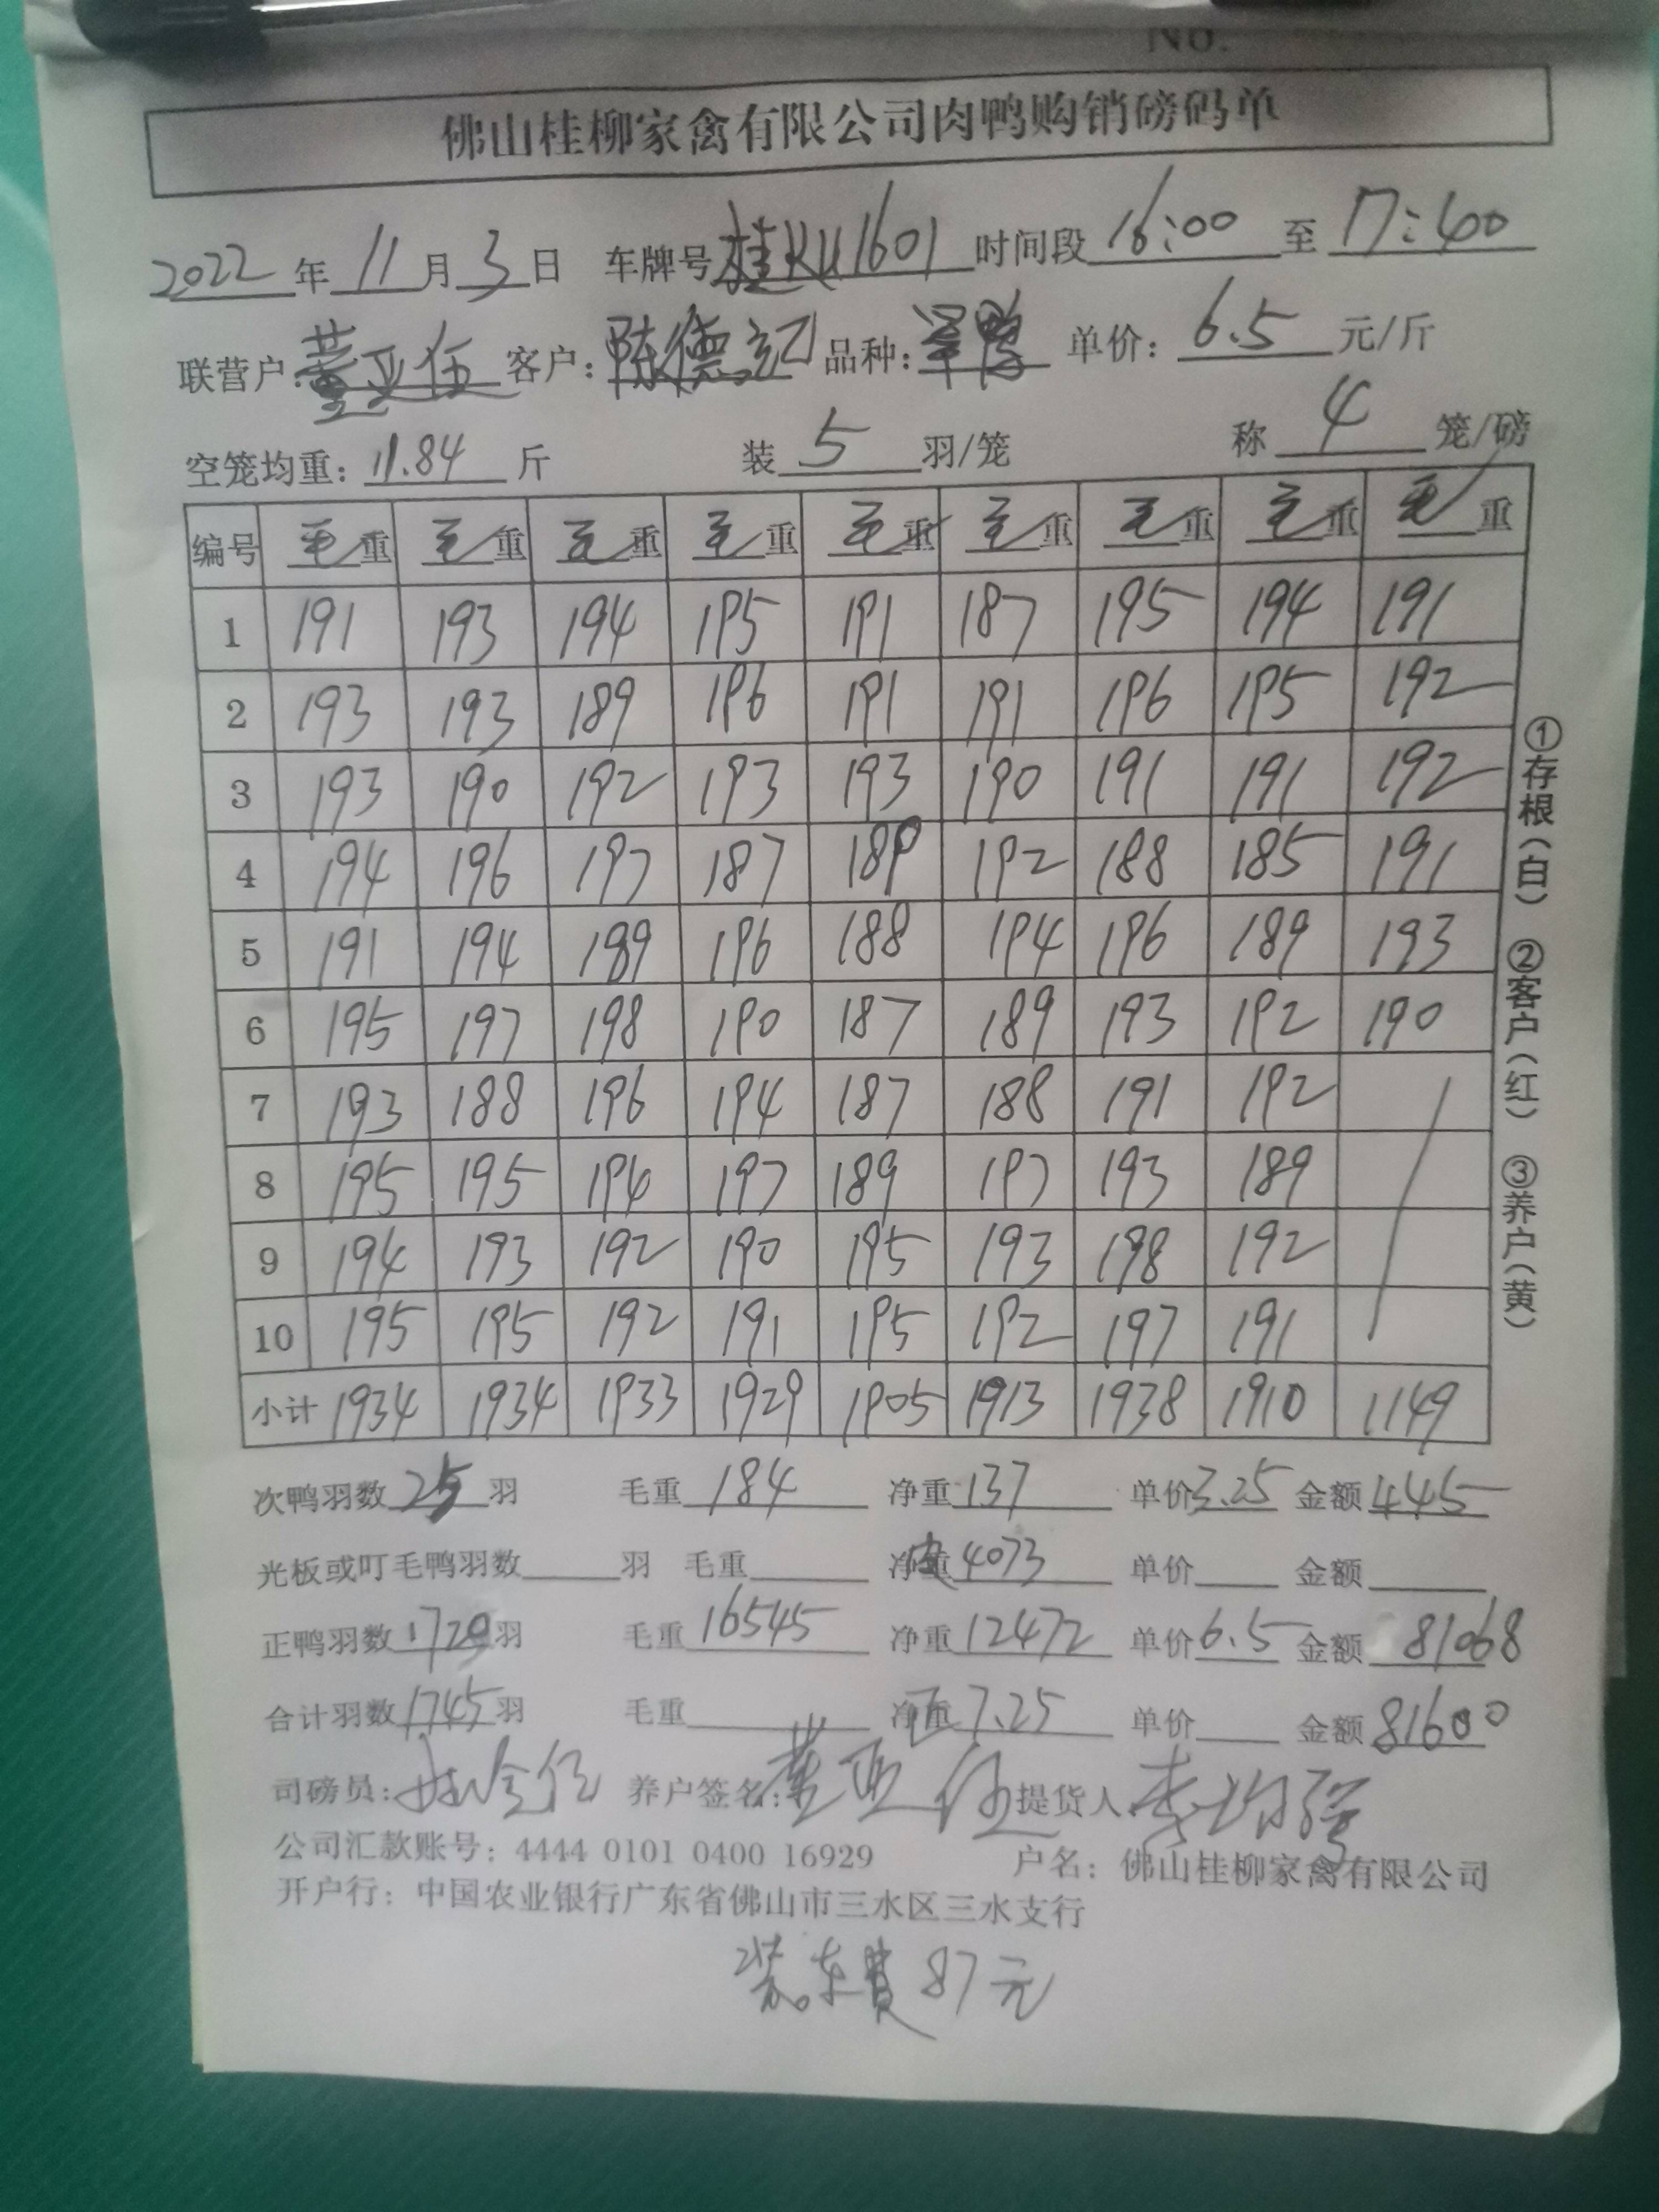 No.
佛山桂柳家禽有限公司肉鸭购销磅码单
2022年11月3日 车牌号桂KU1601时间段16:00至17:40
联营户:董亚伍 客户:陈德记 品种: 单价:6.5元/斤
空笼均重:11.84斤 装5羽/笼 称4笼/磅
编号 毛重 毛重 毛重 毛重 毛重 毛重 毛重 毛重 毛重
1 191 193 194 195 191 187 195 194 191
2 193 193 189 196 191 191 196 195 192
3 193 190 192 193 193 190 191 191 192
4 194 196 197 187 189 192 188 185 191
5 191 194 189 196 188 194 196 189 193
6 195 197 198 190 187 189 193 192 190
7 193 188 196 194 187 188 191 192
8 195 195 194 197 189 197 193 189
9 194 193 192 190 195 193 198 192
10 195 195 192 191 195 192 197 191
小计 1934 1934 1933 1929 1905 1913 1938 1910 1149
次鸭羽数25羽 毛重184 净重137 单价3.25 金额445
光板或叮毛鸭羽数 羽 毛重 皮重4073 单价 金额
正鸭羽数1720羽 毛重16545 净重12472 单价6.5 金额81068
合计羽数1745羽 毛重 重7.25 单价 金额81600
司磅员: 养户签名:董亚伍 提货人:李
公司汇款账号:4444 0101 0400 16929 户名:佛山桂柳家禽有限公司
开户行:中国农业银行广东省佛山市三水区三水支行
装车费87元
①存根(白) ②客户(红) ③养户(黄)